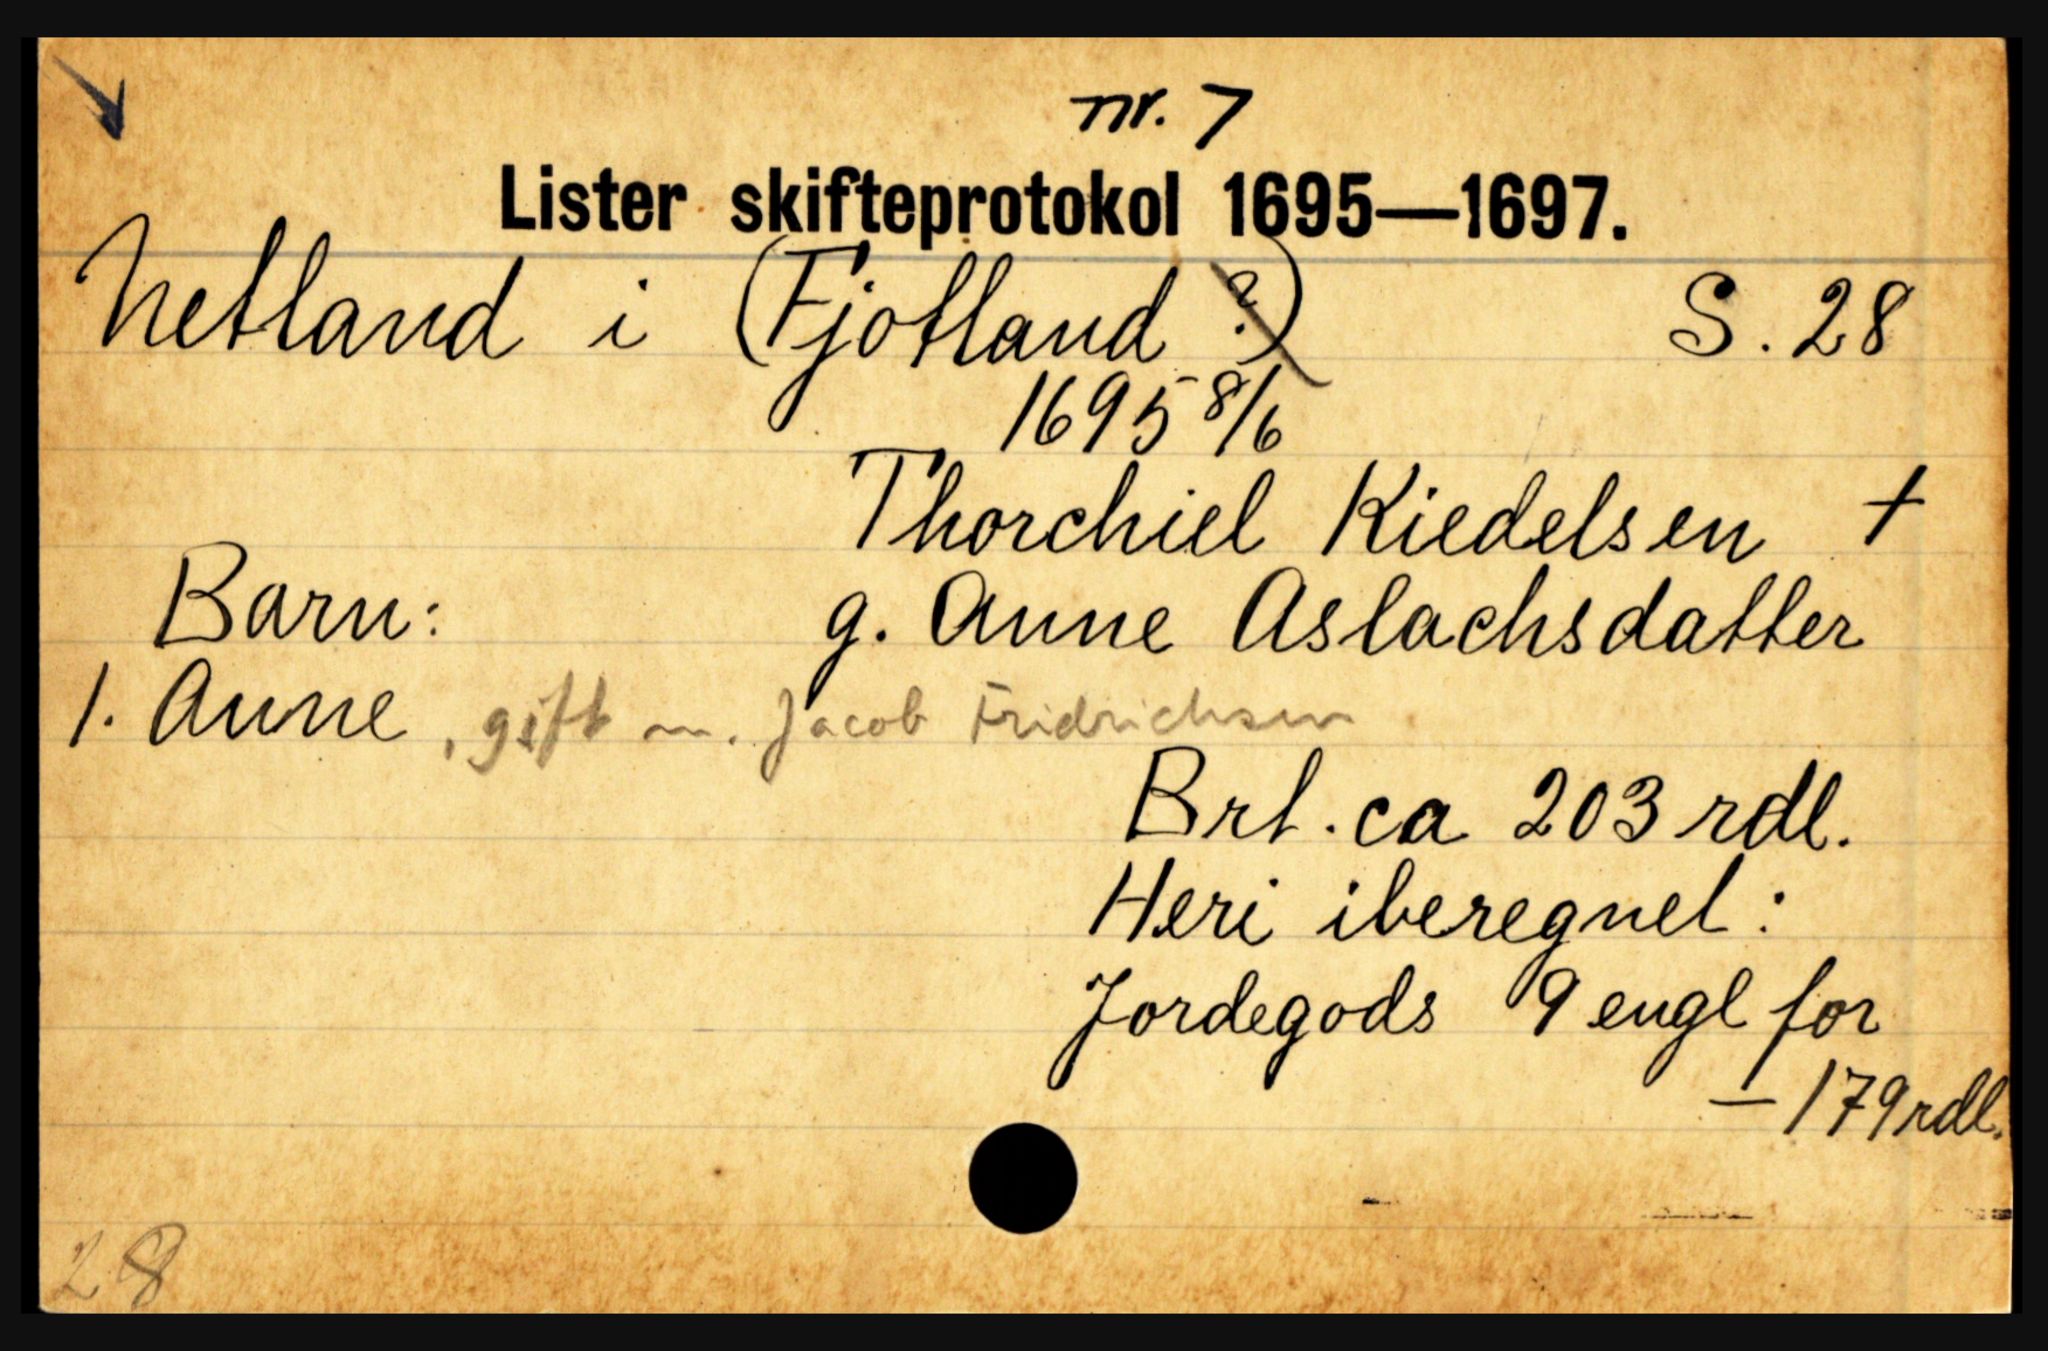 nr. 7
Lister skifteprotokol 1695—1697.
Netland i (Fjotland ?) S. 28
1695 8/6
Thorchiel Kiedelsen +
Barn: g. Anne Aslachsdatter
1. Anne, gift m. Jacob Fridrichsen
Brt. ca 203 rdl.
Heri iberegnet:
Jordegods 9 engl for
— 179 rdl.
28